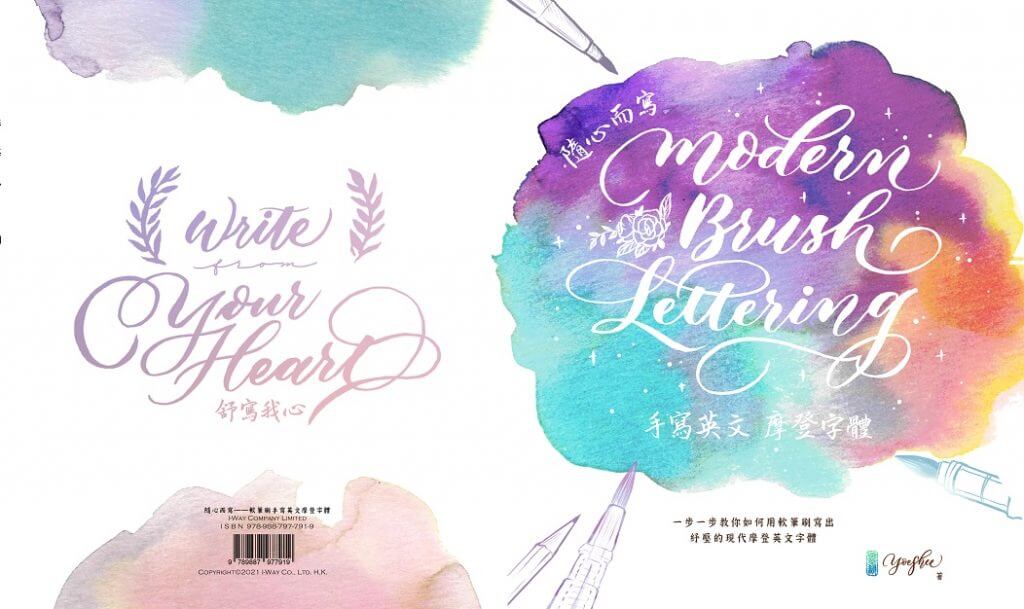 Write
from
Your
Heart
舒寫我心
隨心而寫——軟筆刷手寫英文摩登字體
I-WAY COMPANY LIMITED
ISBN 978-988-797-791-9
9 789887 977919
COPYRIGHT©2021 I-WAY CO., LTD. H.K.
隨心而寫
Modern
Brush
Lettering
手寫英文 摩登字體
一步一步教你如何用軟筆刷寫出
紓壓的現代摩登英文字體
yoeshee 著